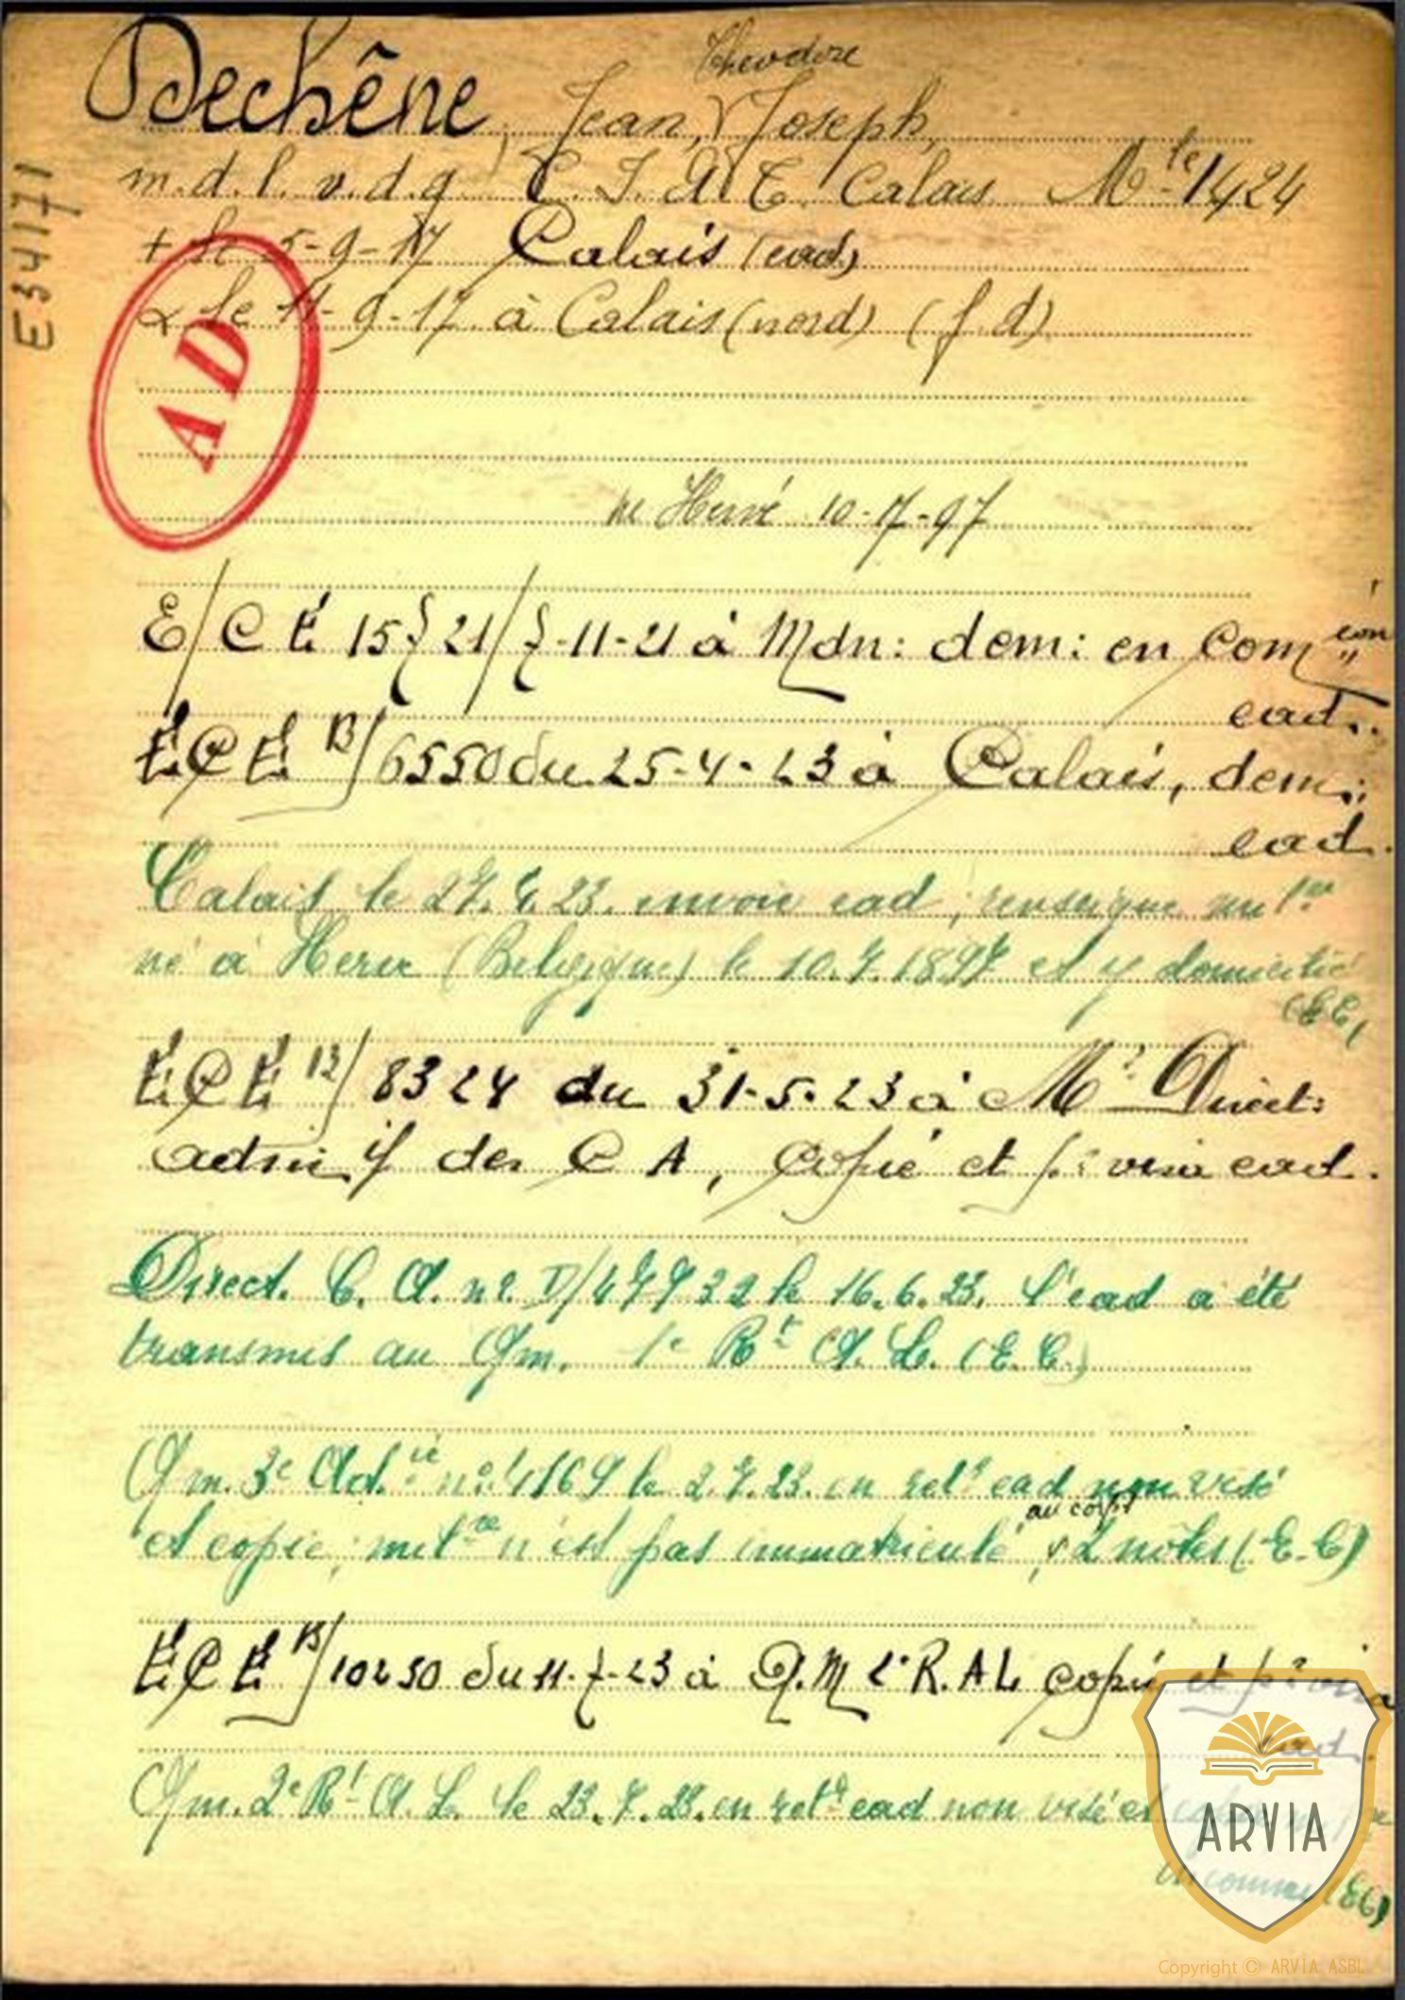 Theodore
Dechêne, Jean, Joseph,
m.d.l. v.d.g. C. I. A T. Calais Mle 1424
E34171
+ le 5-9-17 Calais (ead)
le 11-9-17 à Calais (nord) (f.d)
AD
né Hervé 10-7-97
E/CE 157 21/7-11-21 à Mdn: dem: en Com ion
ead.
ECE B/6550 du 25-4-23 à Calais, dem:
ead.
Calais le 27.4.23. envoie ead, renseigne
né à Herve (Belgique) le 10.7.1897 et y domicilié
(EC)
ECE B/8324 du 31-5-23 à Mr Direct:
admif des C A, copie et pr visa ead.
Direct. C. A. n° D/47732 le 16.6.23. l'ead a été
transmis au Qm. 1e Rt A. L. (E.C.)
Qm. 3e n° 4169 le 2.7.23. en ret ead non visé
au corps
et copie, milre n'est pas immatriculé, 2 notes (E.C)
ECE B/10250 du 11-7-23 à Q.M 2e R.A L copie et pr visa
ead.
Qm. 2e Rt A. L. le 23.7.23. en ret ead non visé et
inconnu (EC)
ARVIA
Copyright © ARVIA ASBL